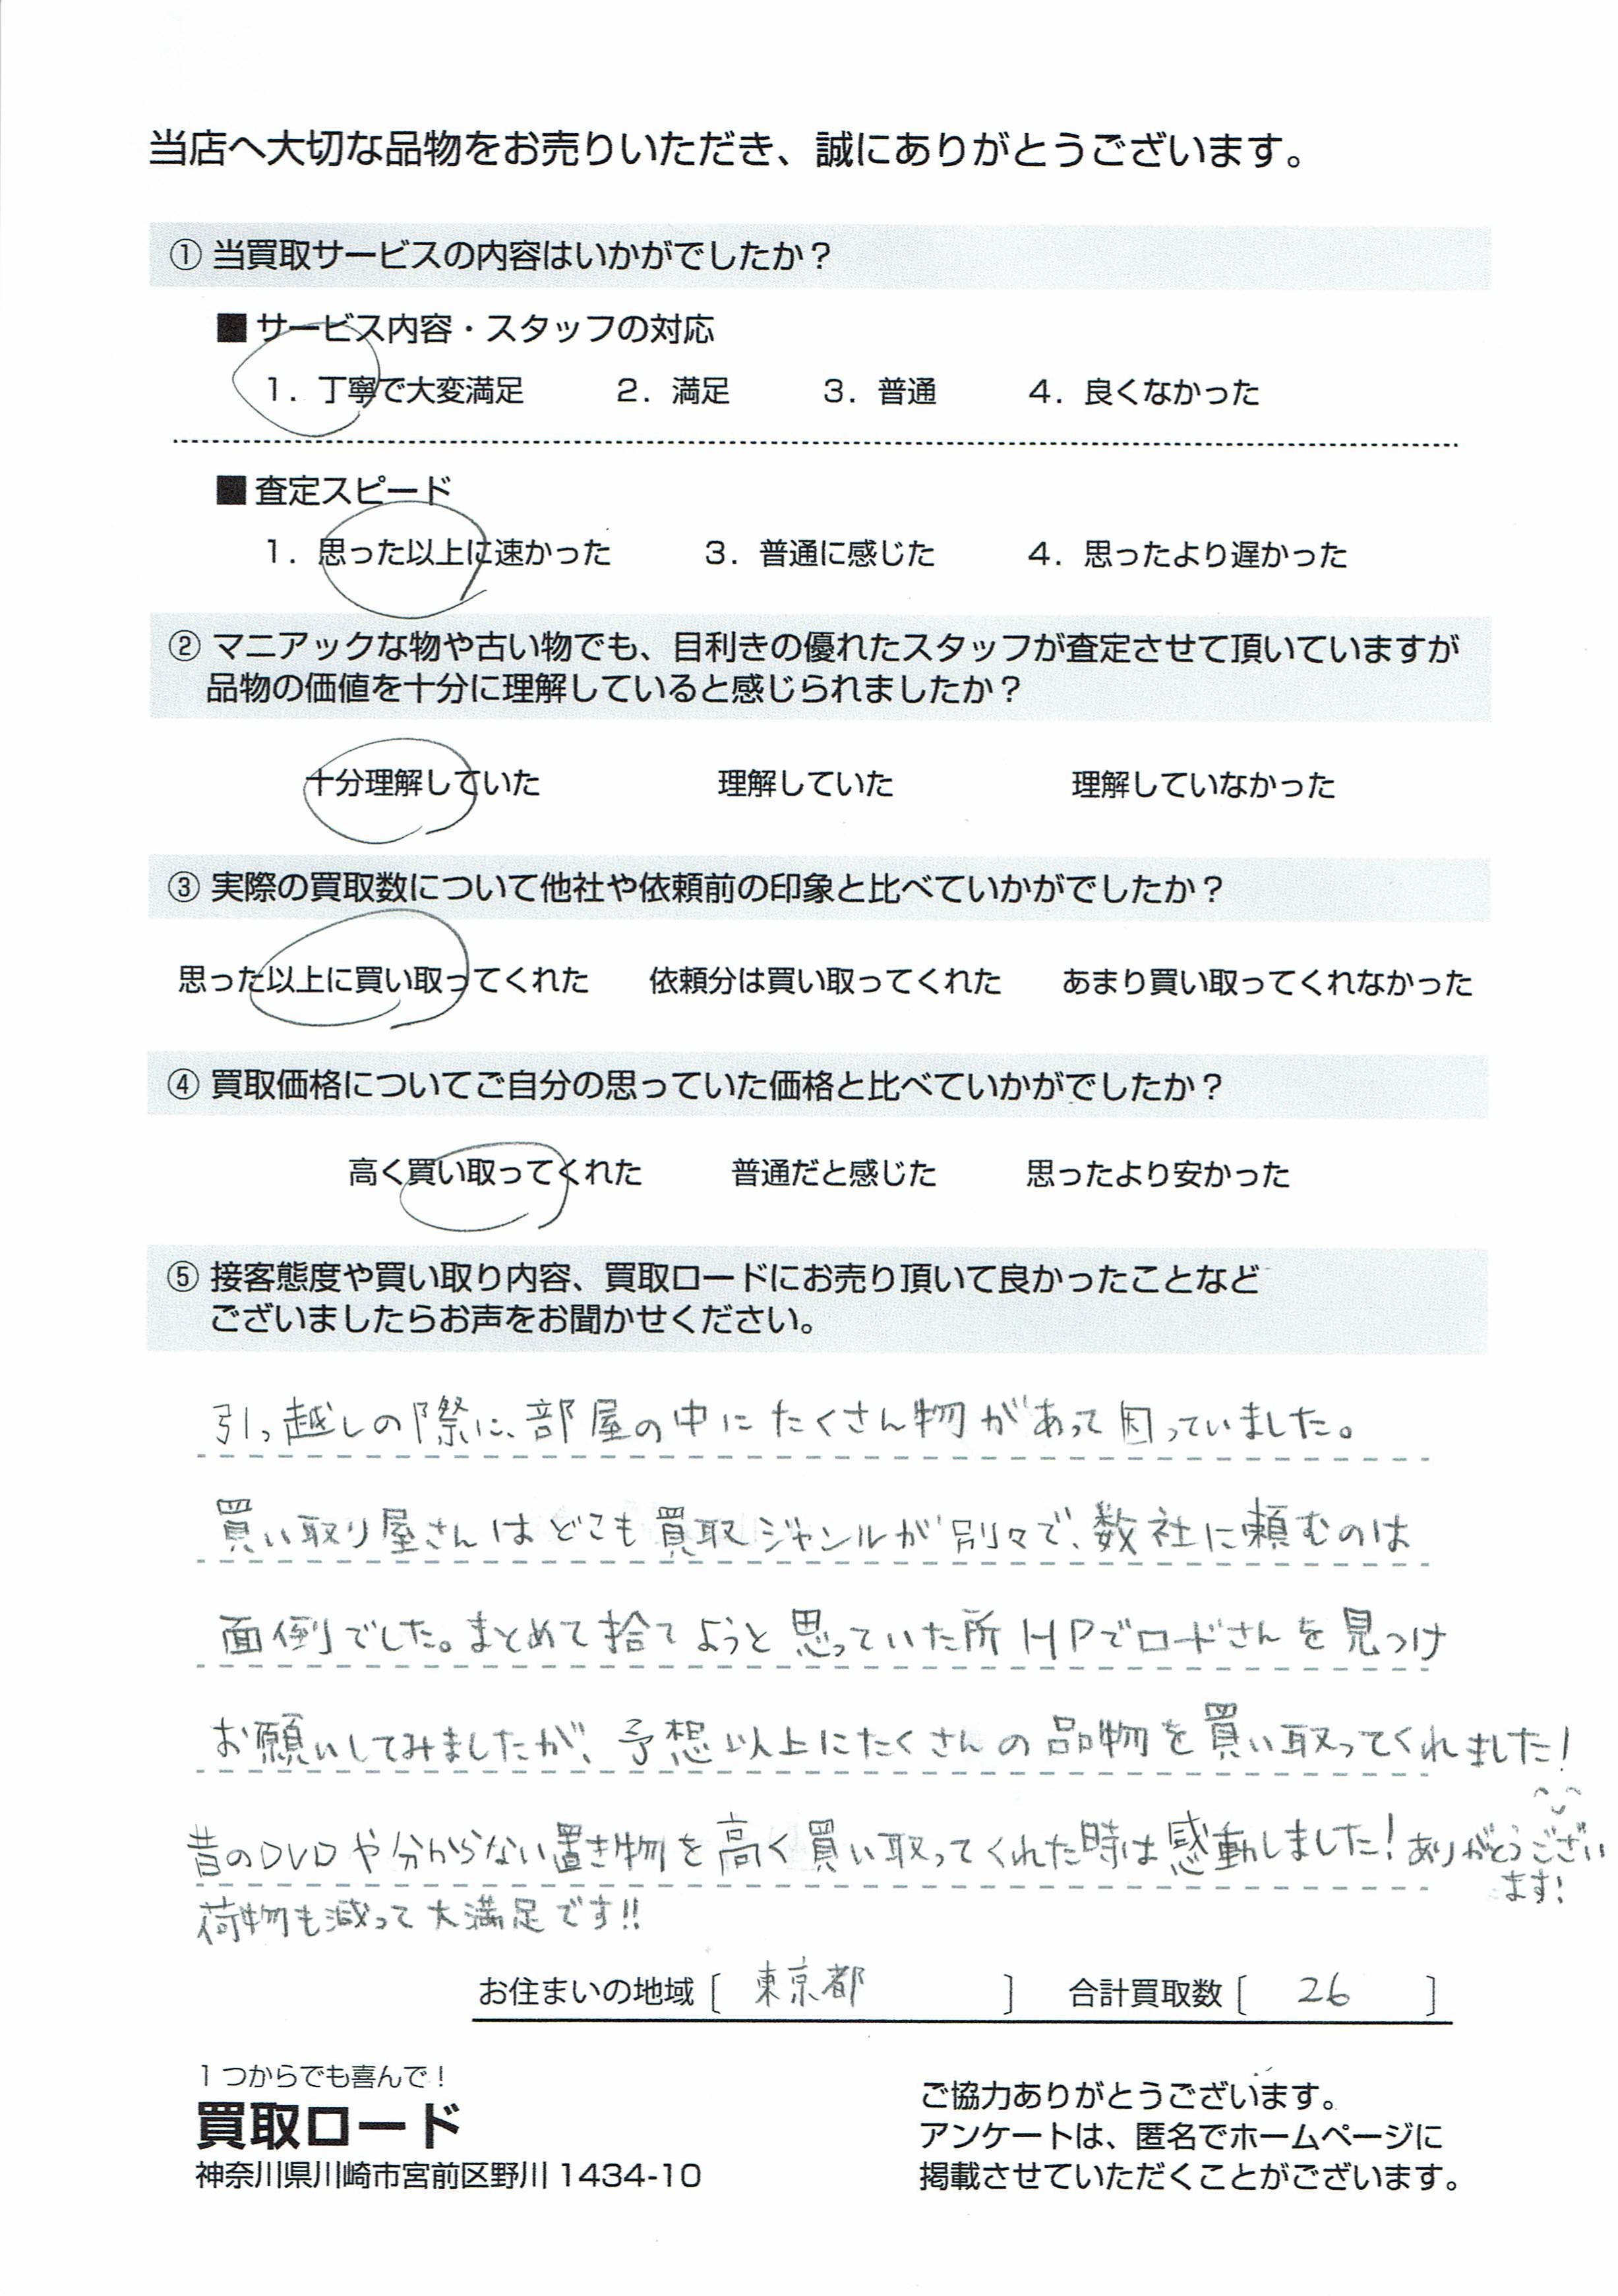 当店へ大切な品物をお売りいただき、誠にありがとうございます。
① 当買取サービスの内容はいかがでしたか？
■ サービス内容・スタッフの対応
1. 丁寧で大変満足 2. 満足 3. 普通 4. 良くなかった
■ 査定スピード
1. 思った以上に速かった 3. 普通に感じた 4. 思ったより遅かった
② マニアックな物や古い物でも、目利きの優れたスタッフが査定させて頂いていますが
品物の価値を十分に理解していると感じられましたか？
十分理解していた 理解していた 理解していなかった
③ 実際の買取数について他社や依頼前の印象と比べていかがでしたか？
思った以上に買い取ってくれた 依頼分は買い取ってくれた あまり買い取ってくれなかった
④ 買取価格についてご自分の思っていた価格と比べていかがでしたか？
高く買い取ってくれた 普通だと感じた 思ったより安かった
⑤ 接客態度や買い取り内容、買取ロードにお売り頂いて良かったことなど
ございましたらお声をお聞かせください。
引っ越しの際に、部屋の中にたくさん物があって困っていました。
買い取り屋さんはどこも買取ジャンルが別々で、数社に頼むのは
面倒でした。まとめて捨てようと思っていた所HPでロードさんを見つけ
お願いしてみましたが、予想以上にたくさんの品物を買い取ってくれました!
昔のDVDや分からない置き物を高く買い取ってくれた時は感動しました!ありがとうござい
ます!
荷物も減って大満足です!!
お住まいの地域 [ 東京都 ] 合計買取数 [ 26 ]
1つからでも喜んで！
買取ロード
神奈川県川崎市宮前区野川 1434-10
ご協力ありがとうございます。
アンケートは、匿名でホームページに
掲載させていただくことがございます。